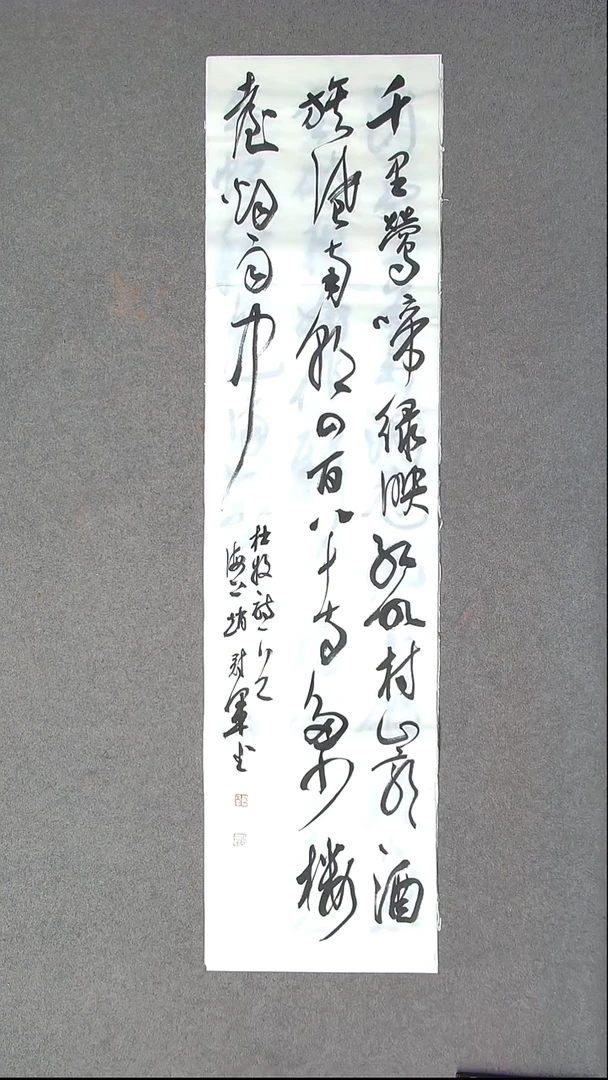 千里鶯啼緑映红水村山郭酒
旗風南朝四百八十寺多少楼
臺烟雨中
杜牧詩一首
海上趙軍书